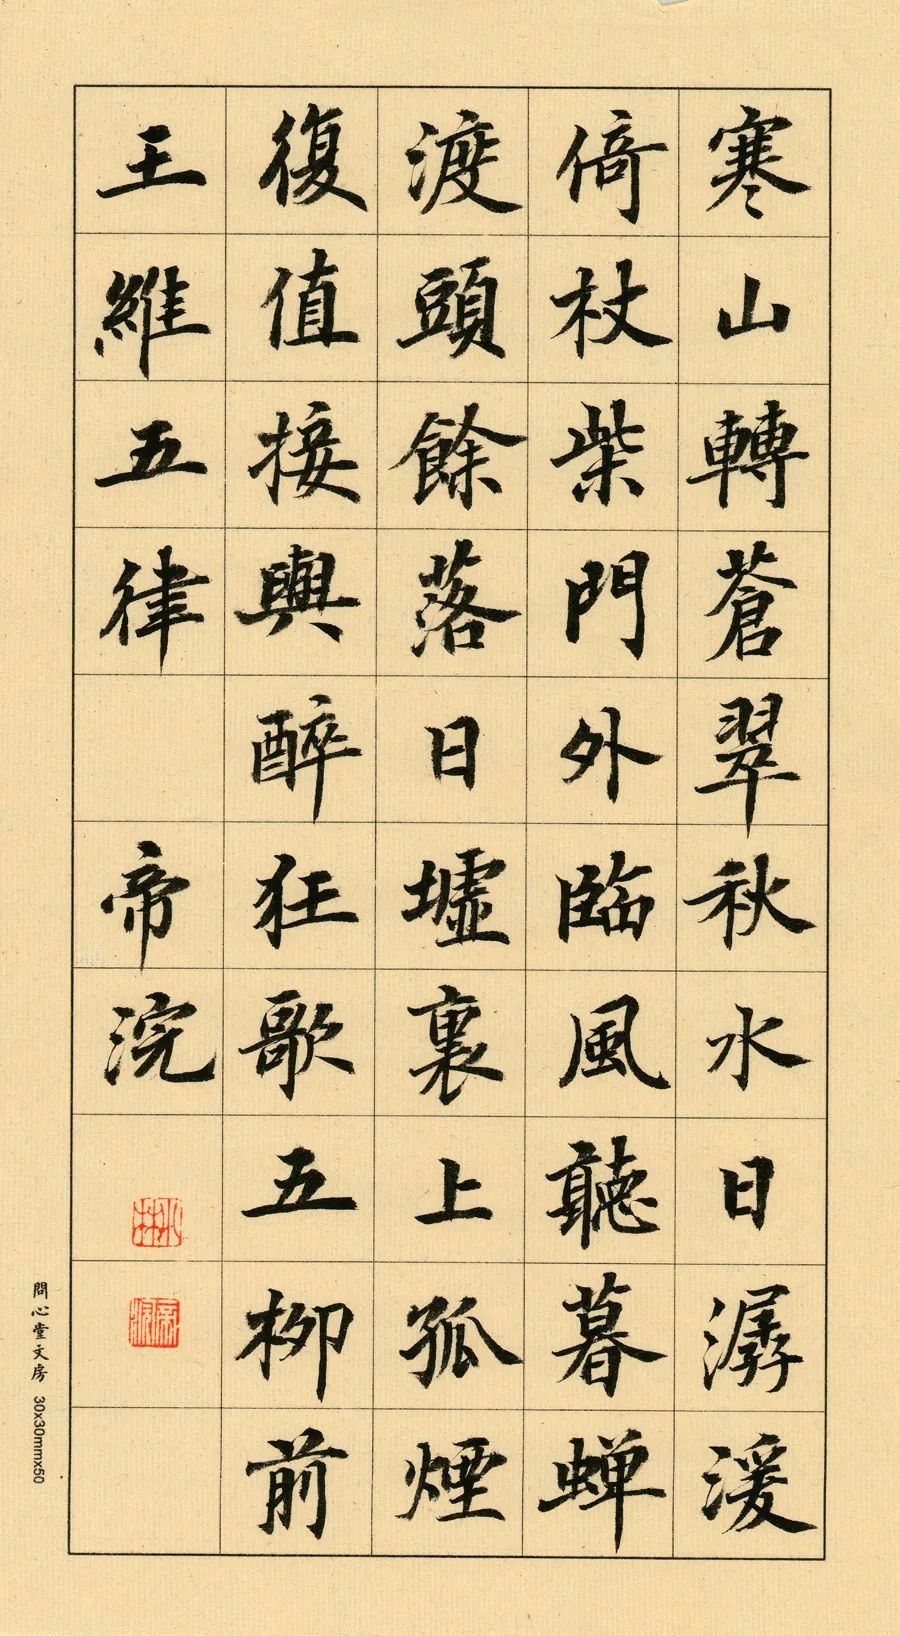 寒山轉蒼翠秋水日潺湲
倚杖柴門外臨風聽暮蟬
渡頭餘落日墟裏上孤煙
復值接輿醉狂歌五柳前
王維五律 帝浣
問心堂文房 30x30mmx50